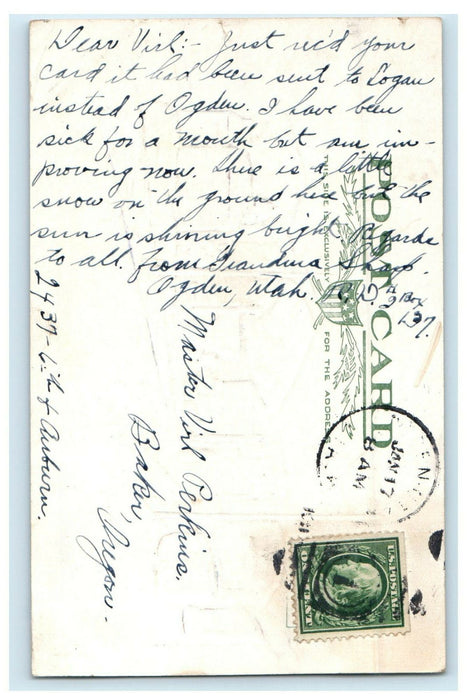 Dear Virl:- Just rec'd your
card it had been sent to Logan
instead of Ogden. I have been
sick for a month but am im-
proving now. there is a little
snow on the ground here but the
sun is shining bright Regards
to all. from Grandma Sharp.
Ogden, Utah. R.D. 2 Box
127.
POST CARD
THIS SIDE IS EXCLUSIVELY FOR THE ADDRESS
Master Virl Perkins.
Baker,
Oregon.
2437- 6th & Auburn.
JAN 17
8 AM
U.S. POSTAGE
ONE CENT